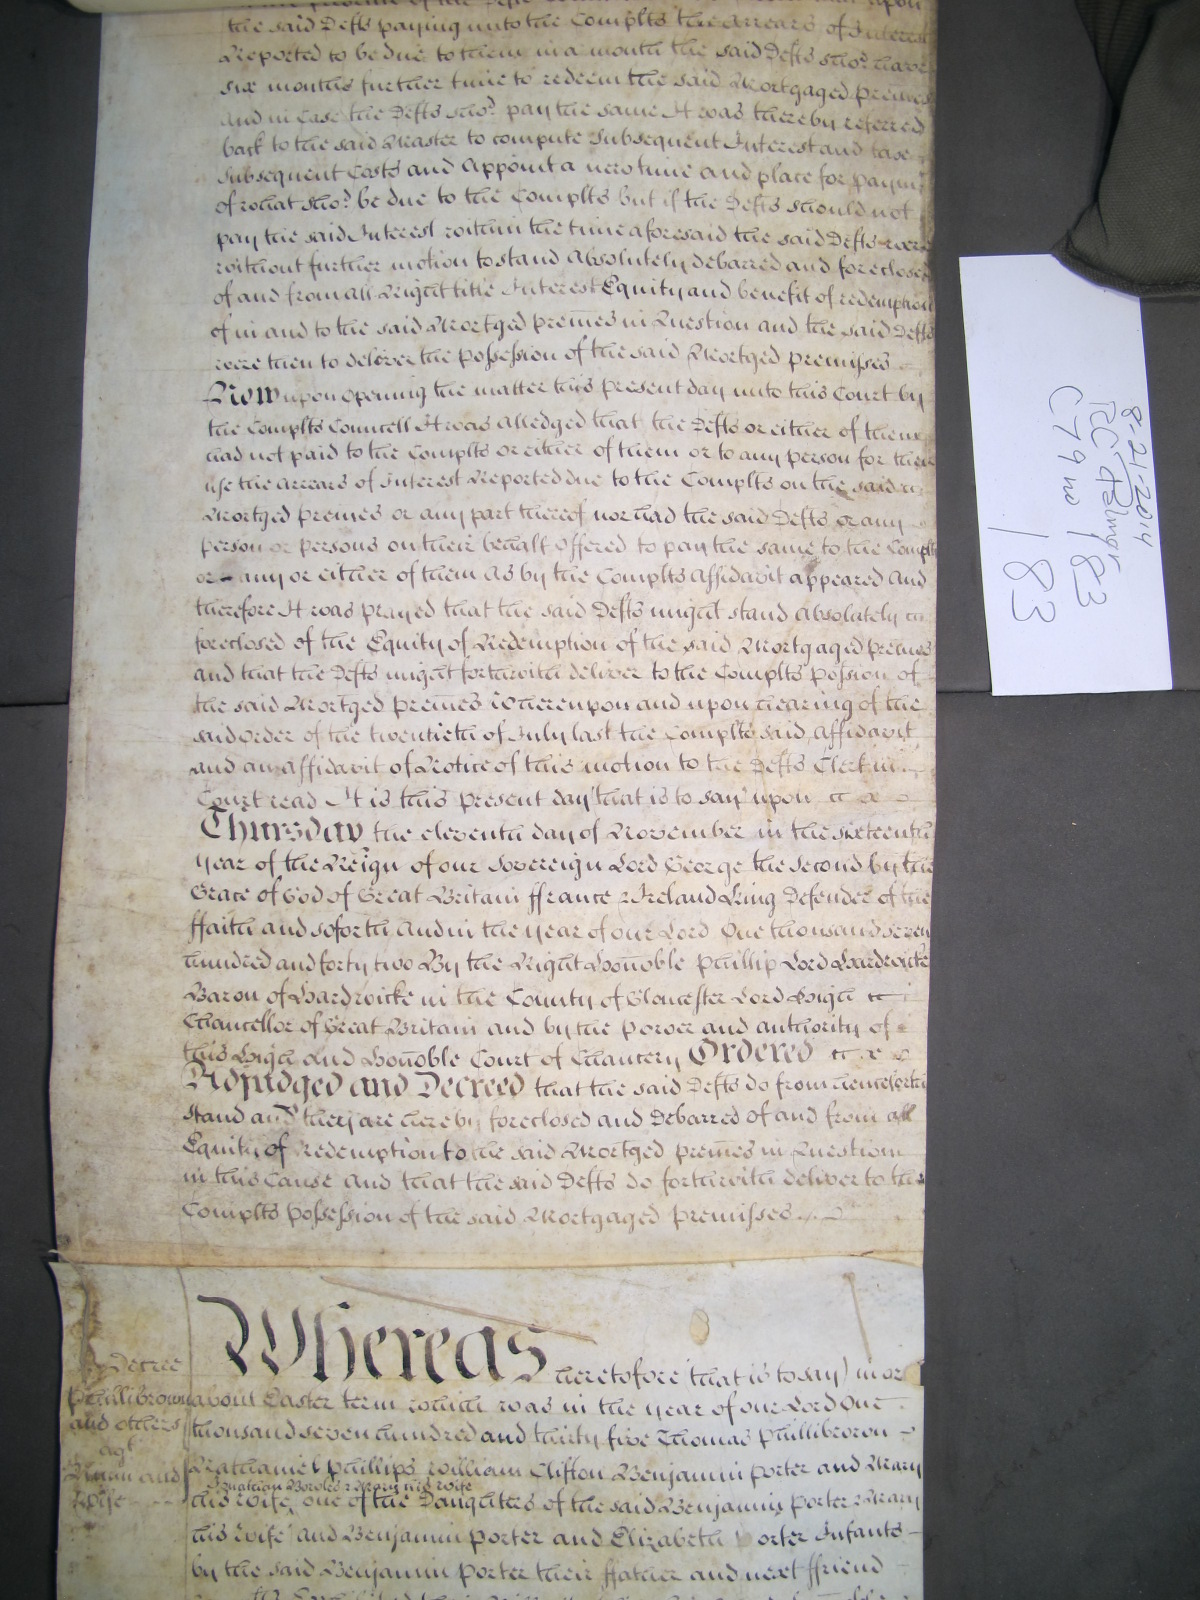 the said Defts paying unto the Complts the Arrears of Interest
Reported to be due to them in a month the said Defts sho:d have
six months further time to redeem the said Mortgaged Premes
and in Case the Defts sho:d pay the same It was thereby referred
back to the said Master to compute Subsequent Interest and taxe
Subsequent Costs and Appoint a new time and place for paym:t
of what sho:d be due to the Complts but if the Defts should not
pay the said Interest within the time aforesaid the said Defts were
without further motion to stand Absolutely debarred and foreclosed
of and from all Right title Interest Equity and benefit of redemption
of in and to the said Mortged premes in Question and the said Defts
were then to deliver the possession of the said Mortged premisses
Now upon Opening the matter this present day unto this Court by
the Complts Councell It was Alledged that the Defts or either of them
had not paid to the Complts or either of them or to any person for their
use the Arrears of Interest Reported due to the Complts on the said
Mortged premes or any part thereof nor had the said Defts or any
person or persons on their behalf Offered to pay the same to the Complts
or any or either of them As by the Complts Affidavit appeared And
therefore It was prayed that the said Defts might stand Absolutely
foreclosed of the Equity of Redemption of the said Mortgaged premes
and that the Defts might forthwith deliver to the Complts possion of
the said Mortged premes Whereupon and upon hearing of the
said Order of the twentieth of July last the Complts said Affidavit
and an Affidavit of Notice of this motion to the Defts Clerk in
Court read It is this present day that is to say upon
Thursday the eleventh day of November in the sixteenth
year of the Reign of our Sovereign Lord George the Second by the
Grace of God of Great Britain ffrance & Ireland King Defender of the
ffaith and soforth And in the year of our Lord One thousand seven
hundred and forty two By the Right Honoble Phillip Lord Hardwicke
Baron of Hardwicke in the County of Gloucester Lord High
Chancellor of Great Britain and by the power and authority of
this High and Honoble Court of Chancery Ordered
Adjudged and Decreed that the said Defts do from henceforth
stand and they are hereby foreclosed and Debarred of and from all
Equity of redemption to the said Mortged premes in Question
in this Cause And that the said Defts do forthwith deliver to the
Complts possession of the said Mortgaged premisses
Whereas heretofore (that is to say) in or
about Easter term which was in the year of our Lord One
thousand seven hundred and thirty five Thomas Phillibrown
Nathaniel Phillips William Clifton Benjamin Porter and Mary
Jonathan Bowles & Mary his wife
his wife one of the Daughters of the said Benjamin Porter & Mary
his wife and Benjamin Porter and Elizabeth Porter Infants
by the said Benjamin Porter their ffather and next ffriend
Decree
Phillibrown
and others
ag:t
and
wife
8-21-2014
C 79 no 183
183